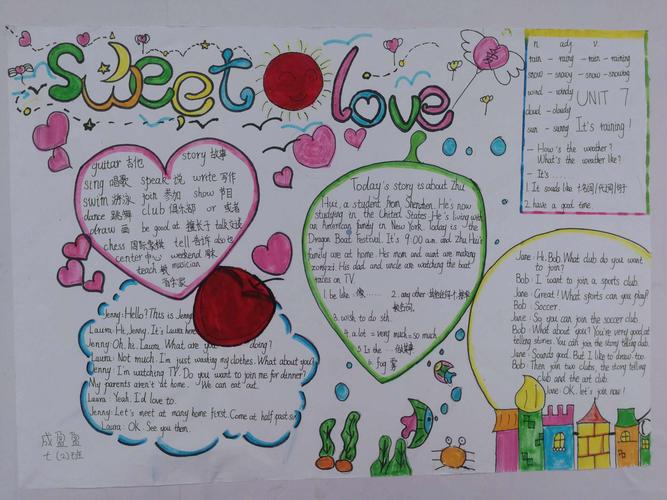 Sweet love
guitar 吉他 story 故事
sing 唱歌 speak 说 write 写作
swim 游泳 join 参加 show 节目
dance 跳舞 club 俱乐部 or 或者
draw 画 be good at 擅长于 talk 交谈
chess 国际象棋 tell 告诉
center 中心 weekend 周末
teach 教 musician
音乐家
Today's story is about Zhu
Hui, a student from Shenzhen. He's now
studying in the United States. He's living with
an American family in New York. Today is
Dragon Boat Festival. It's 9:00 a.m. and Zhu Hui's
family are at home. His mom and aunt are making
zongzi. His dad and uncle are watching the boat
races on TV.
1. be like 像…… 2. any other
3. wish to do sth
4. a lot = very much = so much
5. Is the …
6. Fog 雾
n. adj v.
rain - rainy - rain - raining
snow - snowy - snow - snowing
wind - windy
cloud - cloudy
sun - sunny
UNIT 7
It's raining!
- How's the weather?
What's the weather like?
- It's ......
1. It sounds like
2. have a good time.
Jenny: Hello? This is Jenny
Laura: Hi, Jenny. It's Laura here
Jenny: Oh, hi. Laura. What are you doing?
Laura: Not much. I'm just washing my clothes. What about you?
Jenny: I'm watching TV. Do you want to join me for dinner?
My parents aren't at home. We can eat out.
Laura: Yeah. I'd love to.
Jenny: Let's meet at my home first. Come at half past six
Laura: OK. See you then.
Jane: Hi, Bob. What club do you want
to join?
Bob: I want to join a sports club.
Jane: Great! What sports can you play?
Bob: Soccer.
Jane: So you can join the soccer club.
Bob: What about you? You're very good at
telling stories. You can join the story telling club.
Jane: Sounds good. But I like to draw too.
Bob: Then join two clubs, the story telling
club and the art club.
Jane: OK. let's join now!
成盈盈
七(2)班